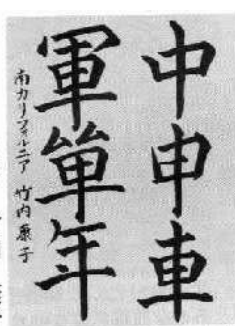 中申車
軍単年
南カリフォルニア 竹内康子